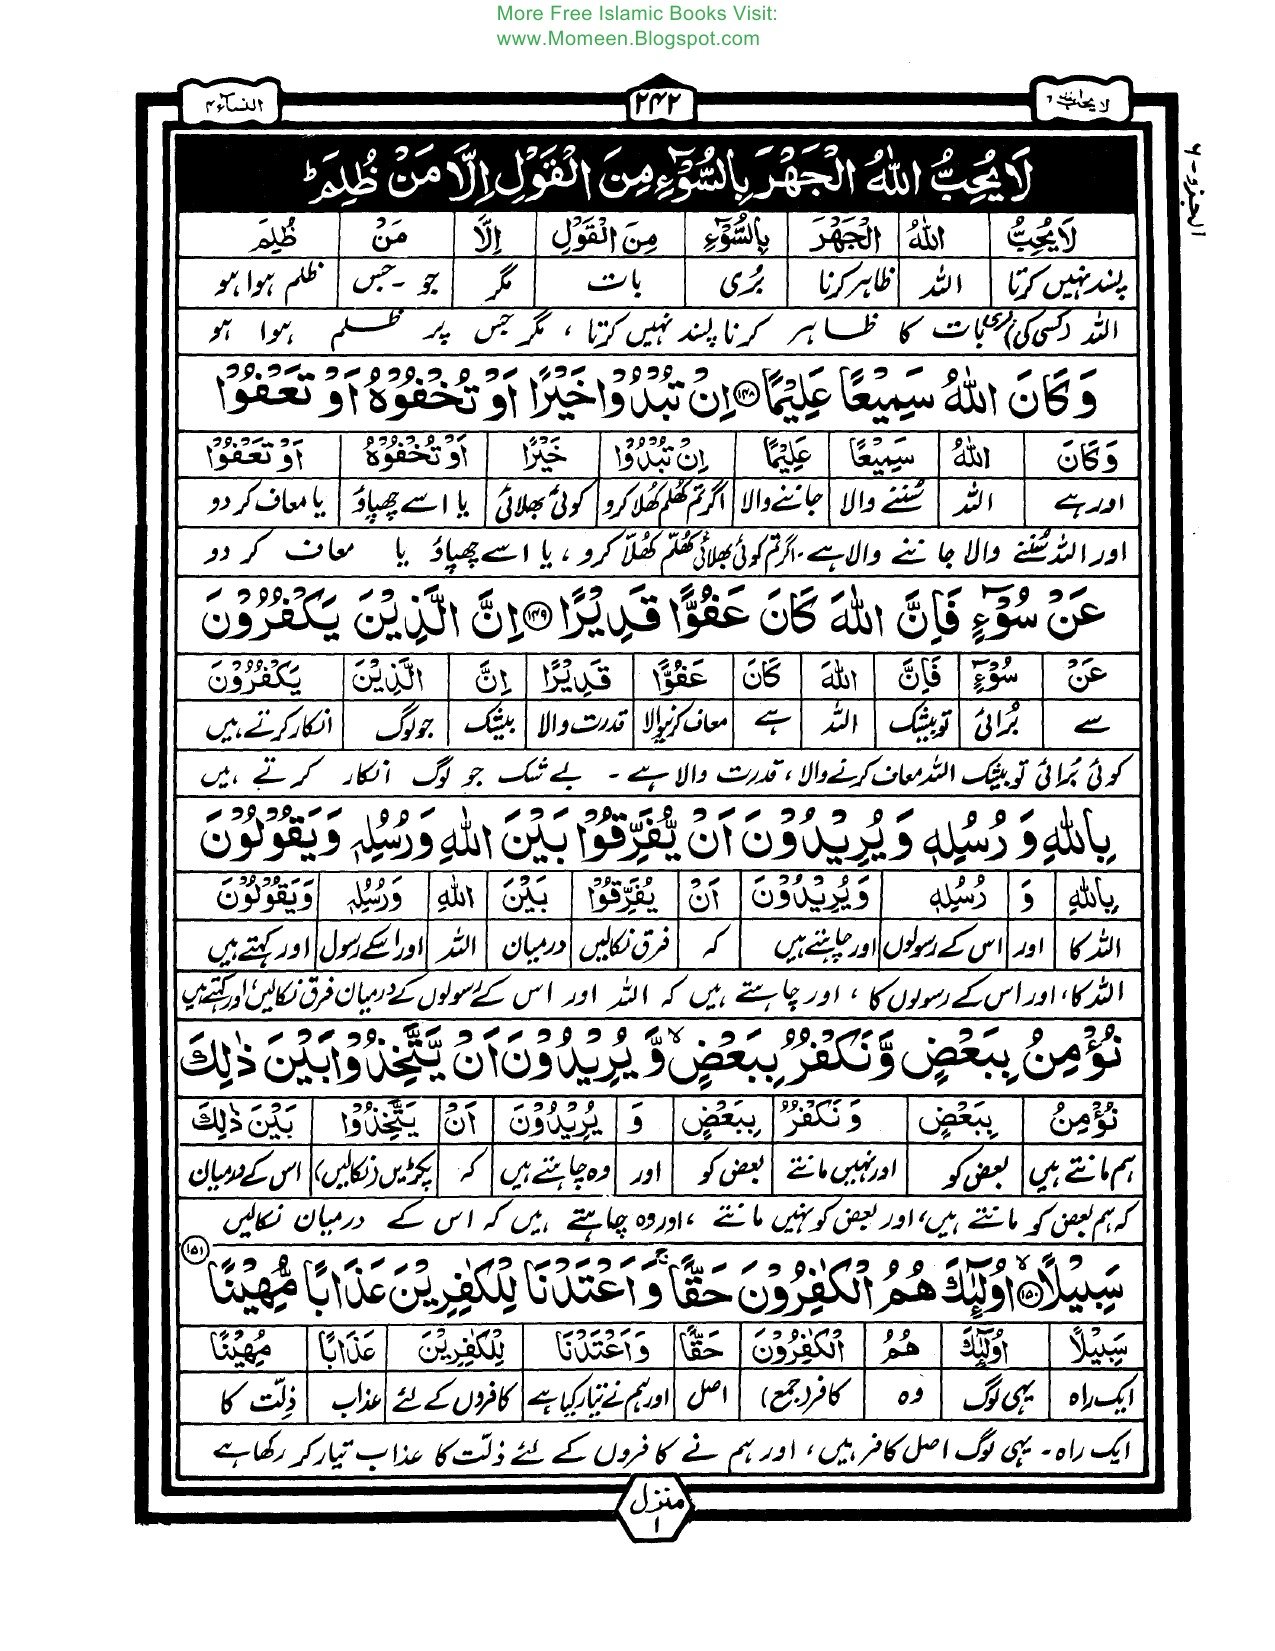 More Free Islamic Books Visit:
www.Momeen.Blogspot.com
لا يحب الله ٦
٢٤٢
النساء ٤
الجزء - ٦
لَا يُحِبُّ اللّٰهُ الْجَهْرَ بِالسُّوْٓءِ مِنَ الْقَوْلِ اِلَّا مَنْ ظُلِمَ ؕ
لَا يُحِبُّ اللّٰهُ الْجَهْرَ بِالسُّوْٓءِ مِنَ الْقَوْلِ اِلَّا مَنْ ظُلِمَ
پسند نہیں کرتا اللہ ظاہر کرنا بُری بات مگر جو - جس ظلم ہوا ہو
اللہ (کسی کی) بُری بات کا ظاہر کرنا پسند نہیں کرتا ، مگر جس پر ظلم ہوا ہو
وَ كَانَ اللّٰهُ سَمِيْعًا عَلِيْمًا ١٤٨ اِنْ تُبْدُوْا خَيْرًا اَوْ تُخْفُوْهُ اَوْ تَعْفُوْا
وَ كَانَ اللّٰهُ سَمِيْعًا عَلِيْمًا اِنْ تُبْدُوْا خَيْرًا اَوْ تُخْفُوْهُ اَوْ تَعْفُوْا
اور ہے اللہ سُننے والا جاننے والا اگر تم کھُلم کھُلا کرو کوئی بھلائی یا اسے چھپاؤ یا معاف کر دو
اور اللہ سُننے والا جاننے والا ہے ۔ اگر تم کوئی بھلائی کھُلّم کھُلّا کرو ، یا اسے چھپاؤ یا معاف کر دو
عَنْ سُوْٓءٍ فَاِنَّ اللّٰهَ كَانَ عَفُوًّا قَدِيْرًا ١٤٩ اِنَّ الَّذِيْنَ يَكْفُرُوْنَ
عَنْ سُوْٓءٍ فَاِنَّ اللّٰهَ كَانَ عَفُوًّا قَدِيْرًا اِنَّ الَّذِيْنَ يَكْفُرُوْنَ
سے بُرائی تو بیشک اللہ ہے معاف کرنیوالا قدرت والا بیشک جو لوگ انکار کرتے ہیں
کوئی بُرائی تو بیشک اللہ معاف کرنے والا ، قدرت والا ہے - بے شک جو لوگ انکار کرتے ہیں
بِاللّٰهِ وَ رُسُلِهٖ وَ يُرِيْدُوْنَ اَنْ يُّفَرِّقُوْا بَيْنَ اللّٰهِ وَ رُسُلِهٖ وَيَقُوْلُوْنَ
بِاللّٰهِ وَ رُسُلِهٖ وَ يُرِيْدُوْنَ اَنْ يُفَرِّقُوْا بَيْنَ اللّٰهِ وَ رُسُلِهٖ وَيَقُوْلُوْنَ
اللہ کا اور اس کے رسولوں اور چاہتے ہیں کہ فرق نکالیں درمیان اللہ اور اسکے رسول اور کہتے ہیں
اللہ کا ، اور اس کے رسولوں کا ، اور چاہتے ہیں کہ اللہ اور اس کے رسولوں کے درمیان فرق نکالیں ، اور کہتے ہیں
نُؤْمِنُ بِبَعْضٍ وَّ نَكْفُرُ بِبَعْضٍ ۙ وَّ يُرِيْدُوْنَ اَنْ يَّتَّخِذُوْا بَيْنَ ذٰلِكَ
نُؤْمِنُ بِبَعْضٍ وَ نَكْفُرُ بِبَعْضٍ وَ يُرِيْدُوْنَ اَنْ يَتَّخِذُوْا بَيْنَ ذٰلِكَ
ہم مانتے ہیں بعض کو اور نہیں مانتے بعض کو اور وہ چاہتے ہیں کہ پکڑیں (نکالیں) اس کے درمیان
کہ ہم بعض کو مانتے ہیں ، اور بعض کو نہیں مانتے ، اور وہ چاہتے ہیں کہ اس کے درمیان نکالیں
سَبِيْلًا ۙ ١٥٠ اُولٰٓئِكَ هُمُ الْكٰفِرُوْنَ حَقًّا ۚ وَ اَعْتَدْنَا لِلْكٰفِرِيْنَ عَذَابًا مُّهِيْنًا ١٥١
سَبِيْلًا اُولٰٓئِكَ هُمُ الْكٰفِرُوْنَ حَقًّا وَ اَعْتَدْنَا لِلْكٰفِرِيْنَ عَذَابًا مُهِيْنًا
ایک راہ یہی لوگ وہ کافر (جمع) اصل اور ہم نے تیار کیا ہے کافروں کے لئے عذاب ذِلّت کا
ایک راہ - یہی لوگ اصل کافر ہیں ، اور ہم نے کافروں کے لئے ذلّت کا عذاب تیار کر رکھا ہے
منزل ١